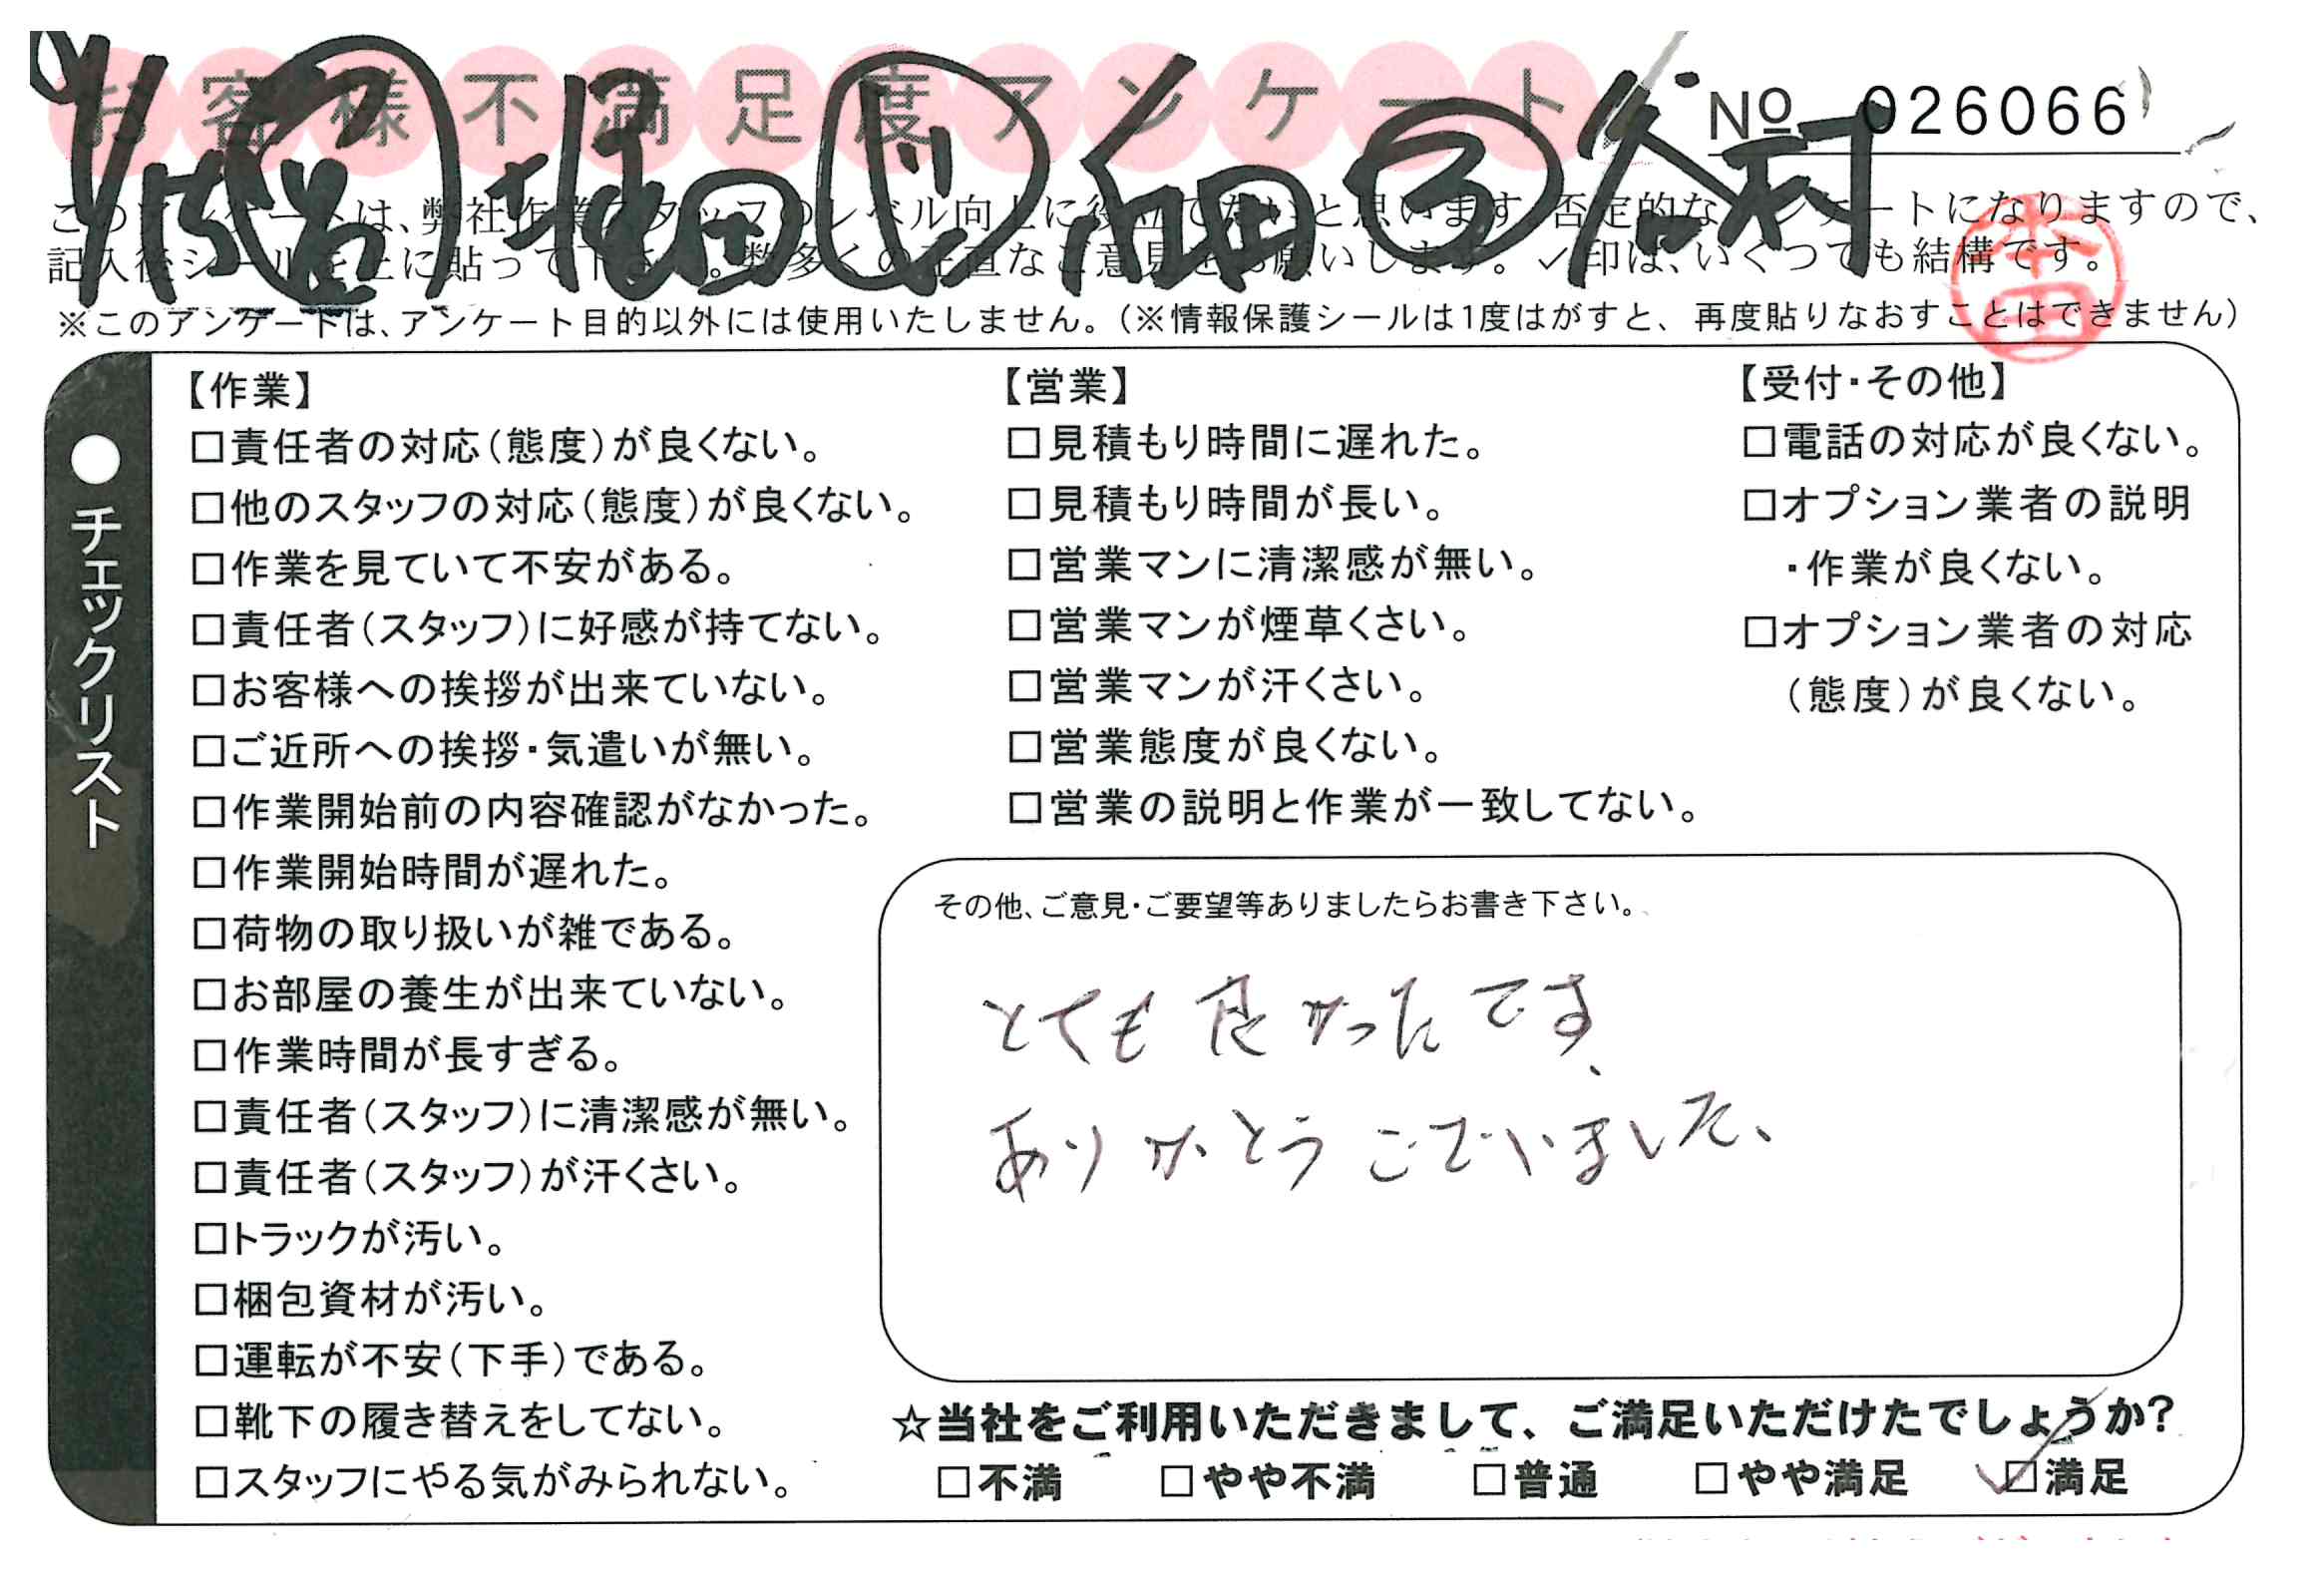 お客様不満足度アンケート
№ 026066
堀田 畑田 谷村
このアンケートは、弊社作業スタッフのレベル向上に役立てたいと思います。否定的なアンケートになりますので、
記入後シールを上に貼って下さい。数多くの正直なご意見をお願いします。✓印は、いくつでも結構です。
※このアンケートは、アンケート目的以外には使用いたしません。(※情報保護シールは1度はがすと、再度貼りなおすことはできません)
本田
●チェックリスト
【作業】
□責任者の対応(態度)が良くない。
□他のスタッフの対応(態度)が良くない。
□作業を見ていて不安がある。
□責任者(スタッフ)に好感が持てない。
□お客様への挨拶が出来ていない。
□ご近所への挨拶・気遣いが無い。
□作業開始前の内容確認がなかった。
□作業開始時間が遅れた。
□荷物の取り扱いが雑である。
□お部屋の養生が出来ていない。
□作業時間が長すぎる。
□責任者(スタッフ)に清潔感が無い。
□責任者(スタッフ)が汗くさい。
□トラックが汚い。
□梱包資材が汚い。
□運転が不安(下手)である。
□靴下の履き替えをしてない。
□スタッフにやる気がみられない。
【営業】
□見積もり時間に遅れた。
□見積もり時間が長い。
□営業マンに清潔感が無い。
□営業マンが煙草くさい。
□営業マンが汗くさい。
□営業態度が良くない。
□営業の説明と作業が一致してない。
【受付・その他】
□電話の対応が良くない。
□オプション業者の説明
・作業が良くない。
□オプション業者の対応
(態度)が良くない。
その他、ご意見・ご要望等ありましたらお書き下さい。
とても良かったです、
ありがとうございました、
☆当社をご利用いただきまして、ご満足いただけたでしょうか?
□不満 □やや不満 □普通 □やや満足 ☑満足